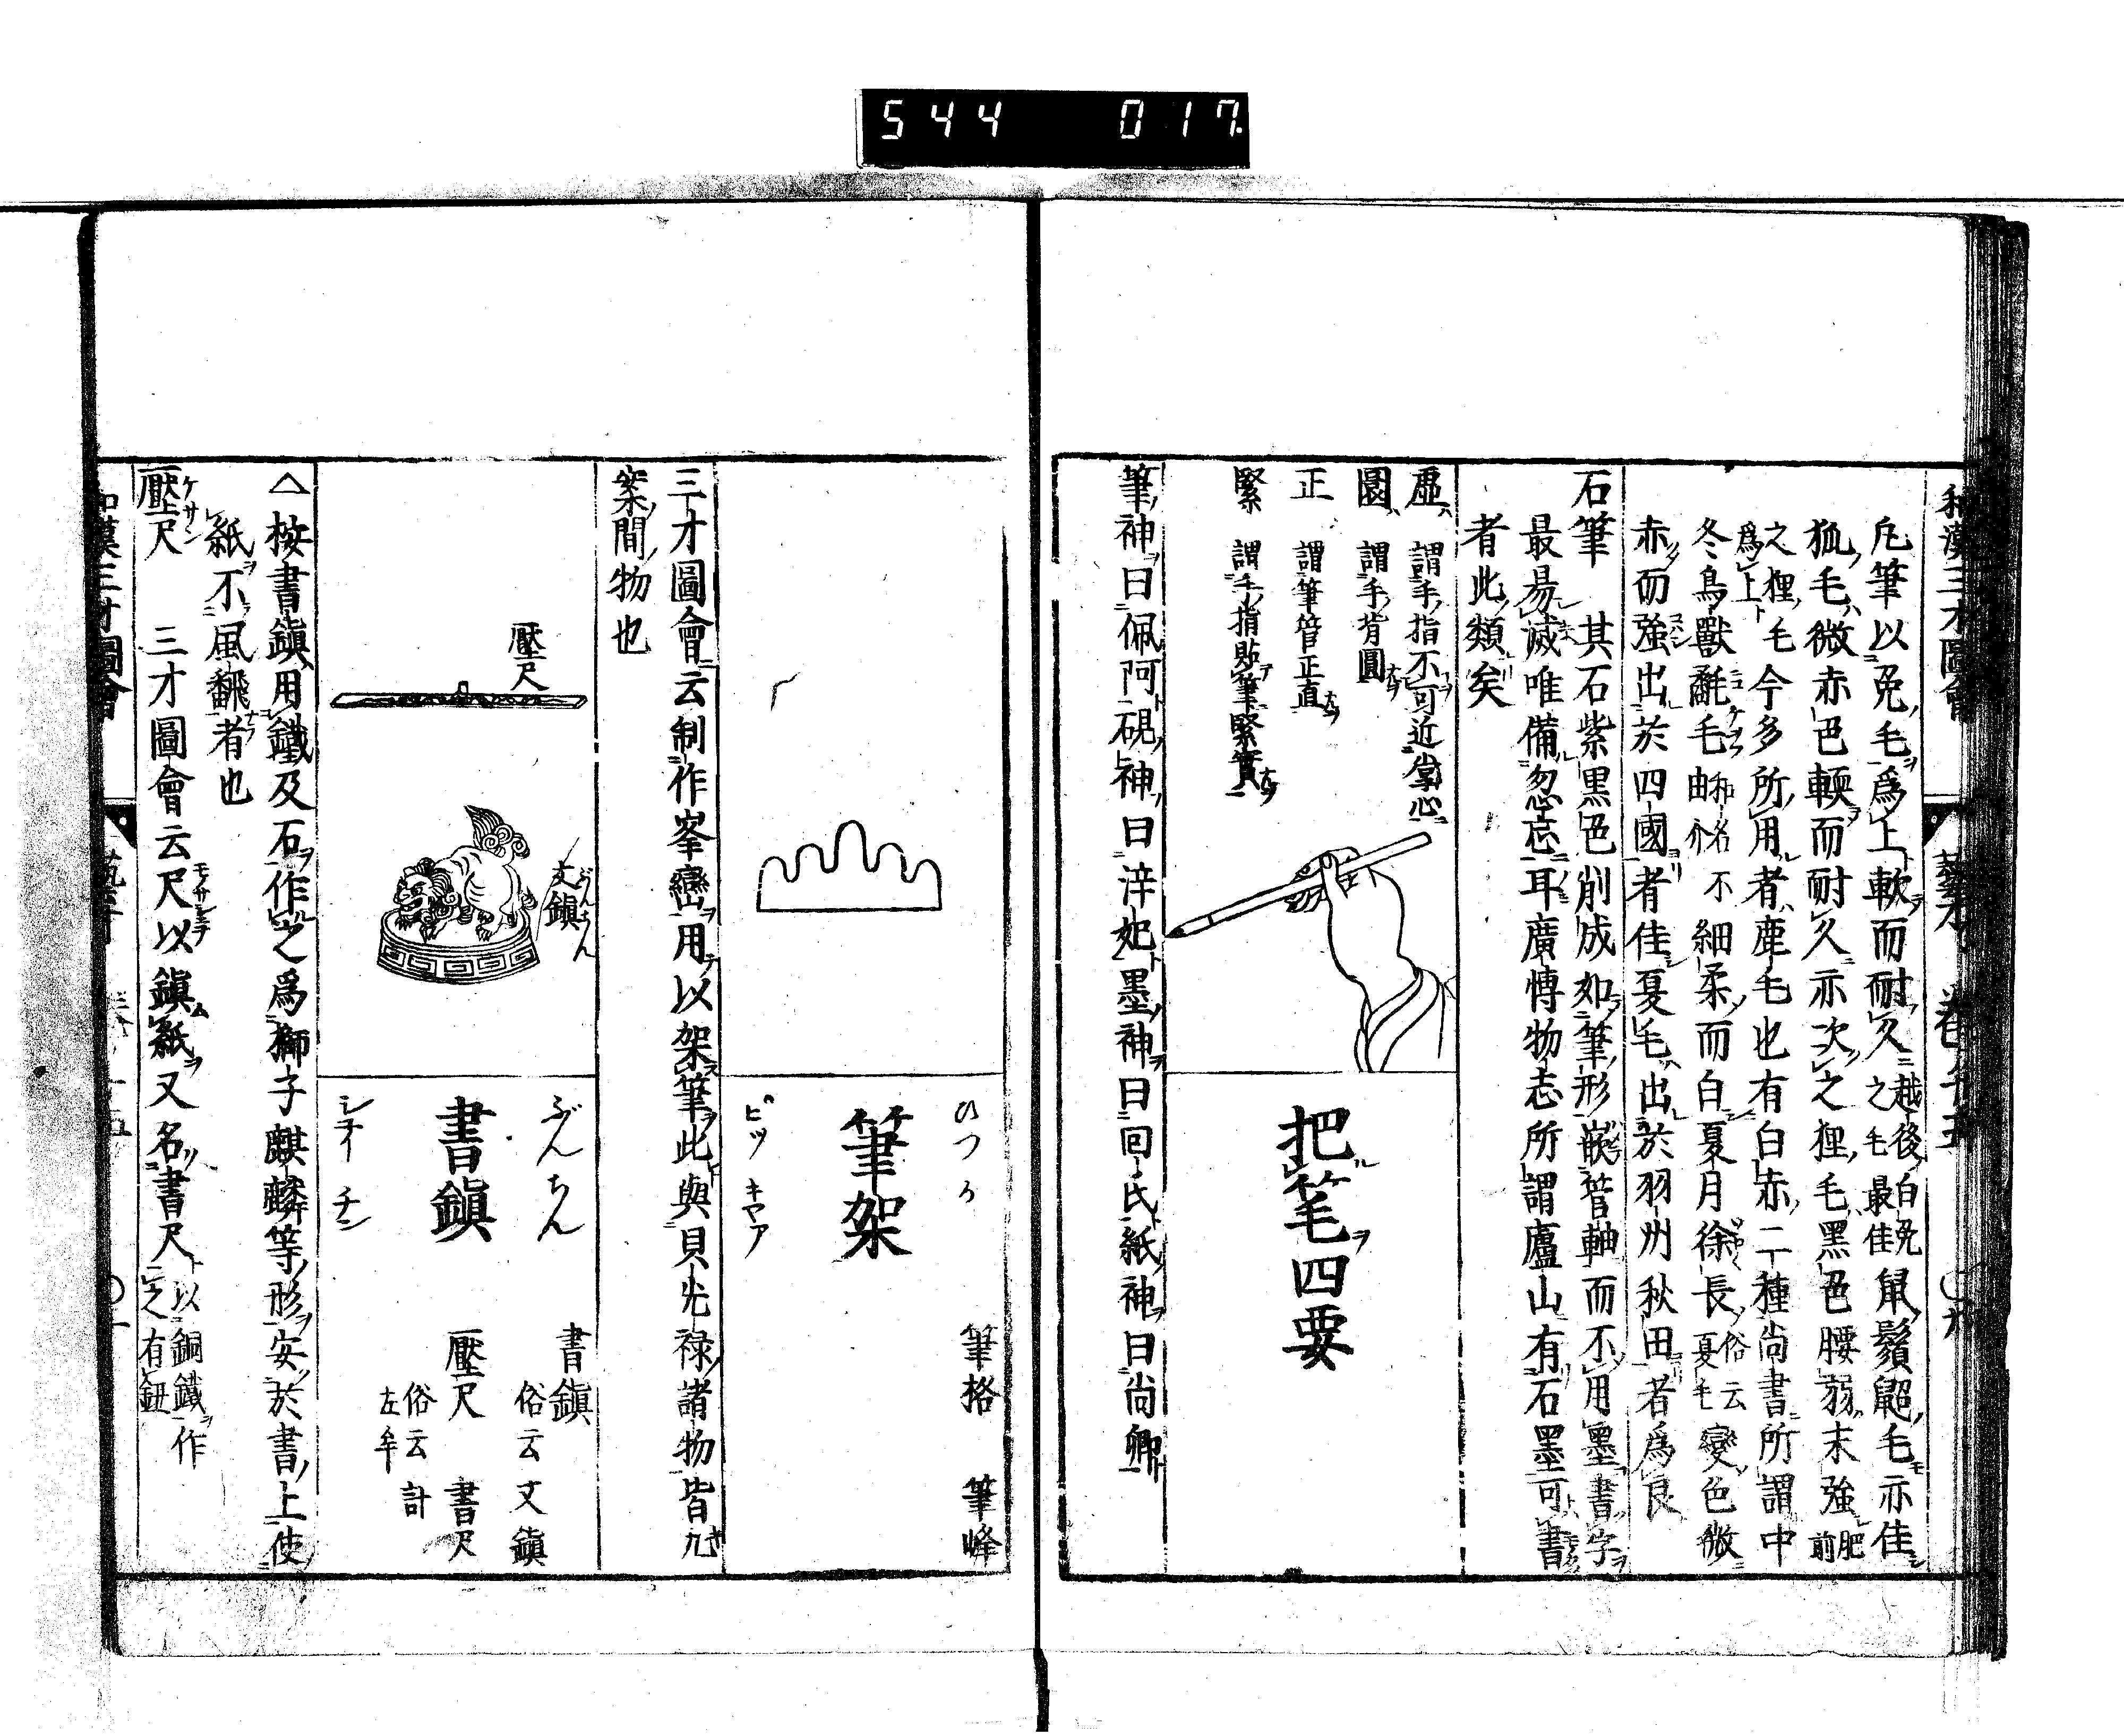 544 017
和漢三才圖會 藝才 卷十五 〇九
凡筆以兎毛爲上軟而耐久 越後白兎之毛最佳 鼠鬚鼦毛亦佳
狐毛微赤色軟而耐久亦次之狸毛黑色腰弱末強 肥前
之狸毛爲上 今多所用者鹿毛也有白赤二種尚書所謂中
冬鳥獸氄毛 和名不由介 細柔而白夏月徐長 俗云夏毛 變色微
赤而強出於四國者佳夏毛出於羽州秋田者爲良
石筆 其石紫黒色削成如筆形嵌管軸而不用墨書字
最易滅唯備忽忘耳廣博物志所謂廬山有石墨可書
者此類矣
虛 謂手指不可近掌心
圓 謂手背圓
正 謂筆管正直
緊 謂手指貼筆緊實
把筆四要
筆神曰佩阿硯神曰淬妃墨神曰回氏紙神曰尚卿
ひつか
筆架
ピッ キヤア
筆格 筆峰
三才圖會云制作峯巒用以架筆此與貝光祿諸物皆几
案間物也
壓尺
文鎮
ぶんちん
ぶんちん
書鎮
シチイ チン
書鎮 俗云文鎮
壓尺 書尺 俗云計左牟
△按書鎮用鐵及石作之爲獅子麒麟等形安於書上使
紙不風飜者也
壓尺 ケサン 三才圖會云尺以鎮紙又名書尺 以銅鐵作之有鈕
和漢三才圖會